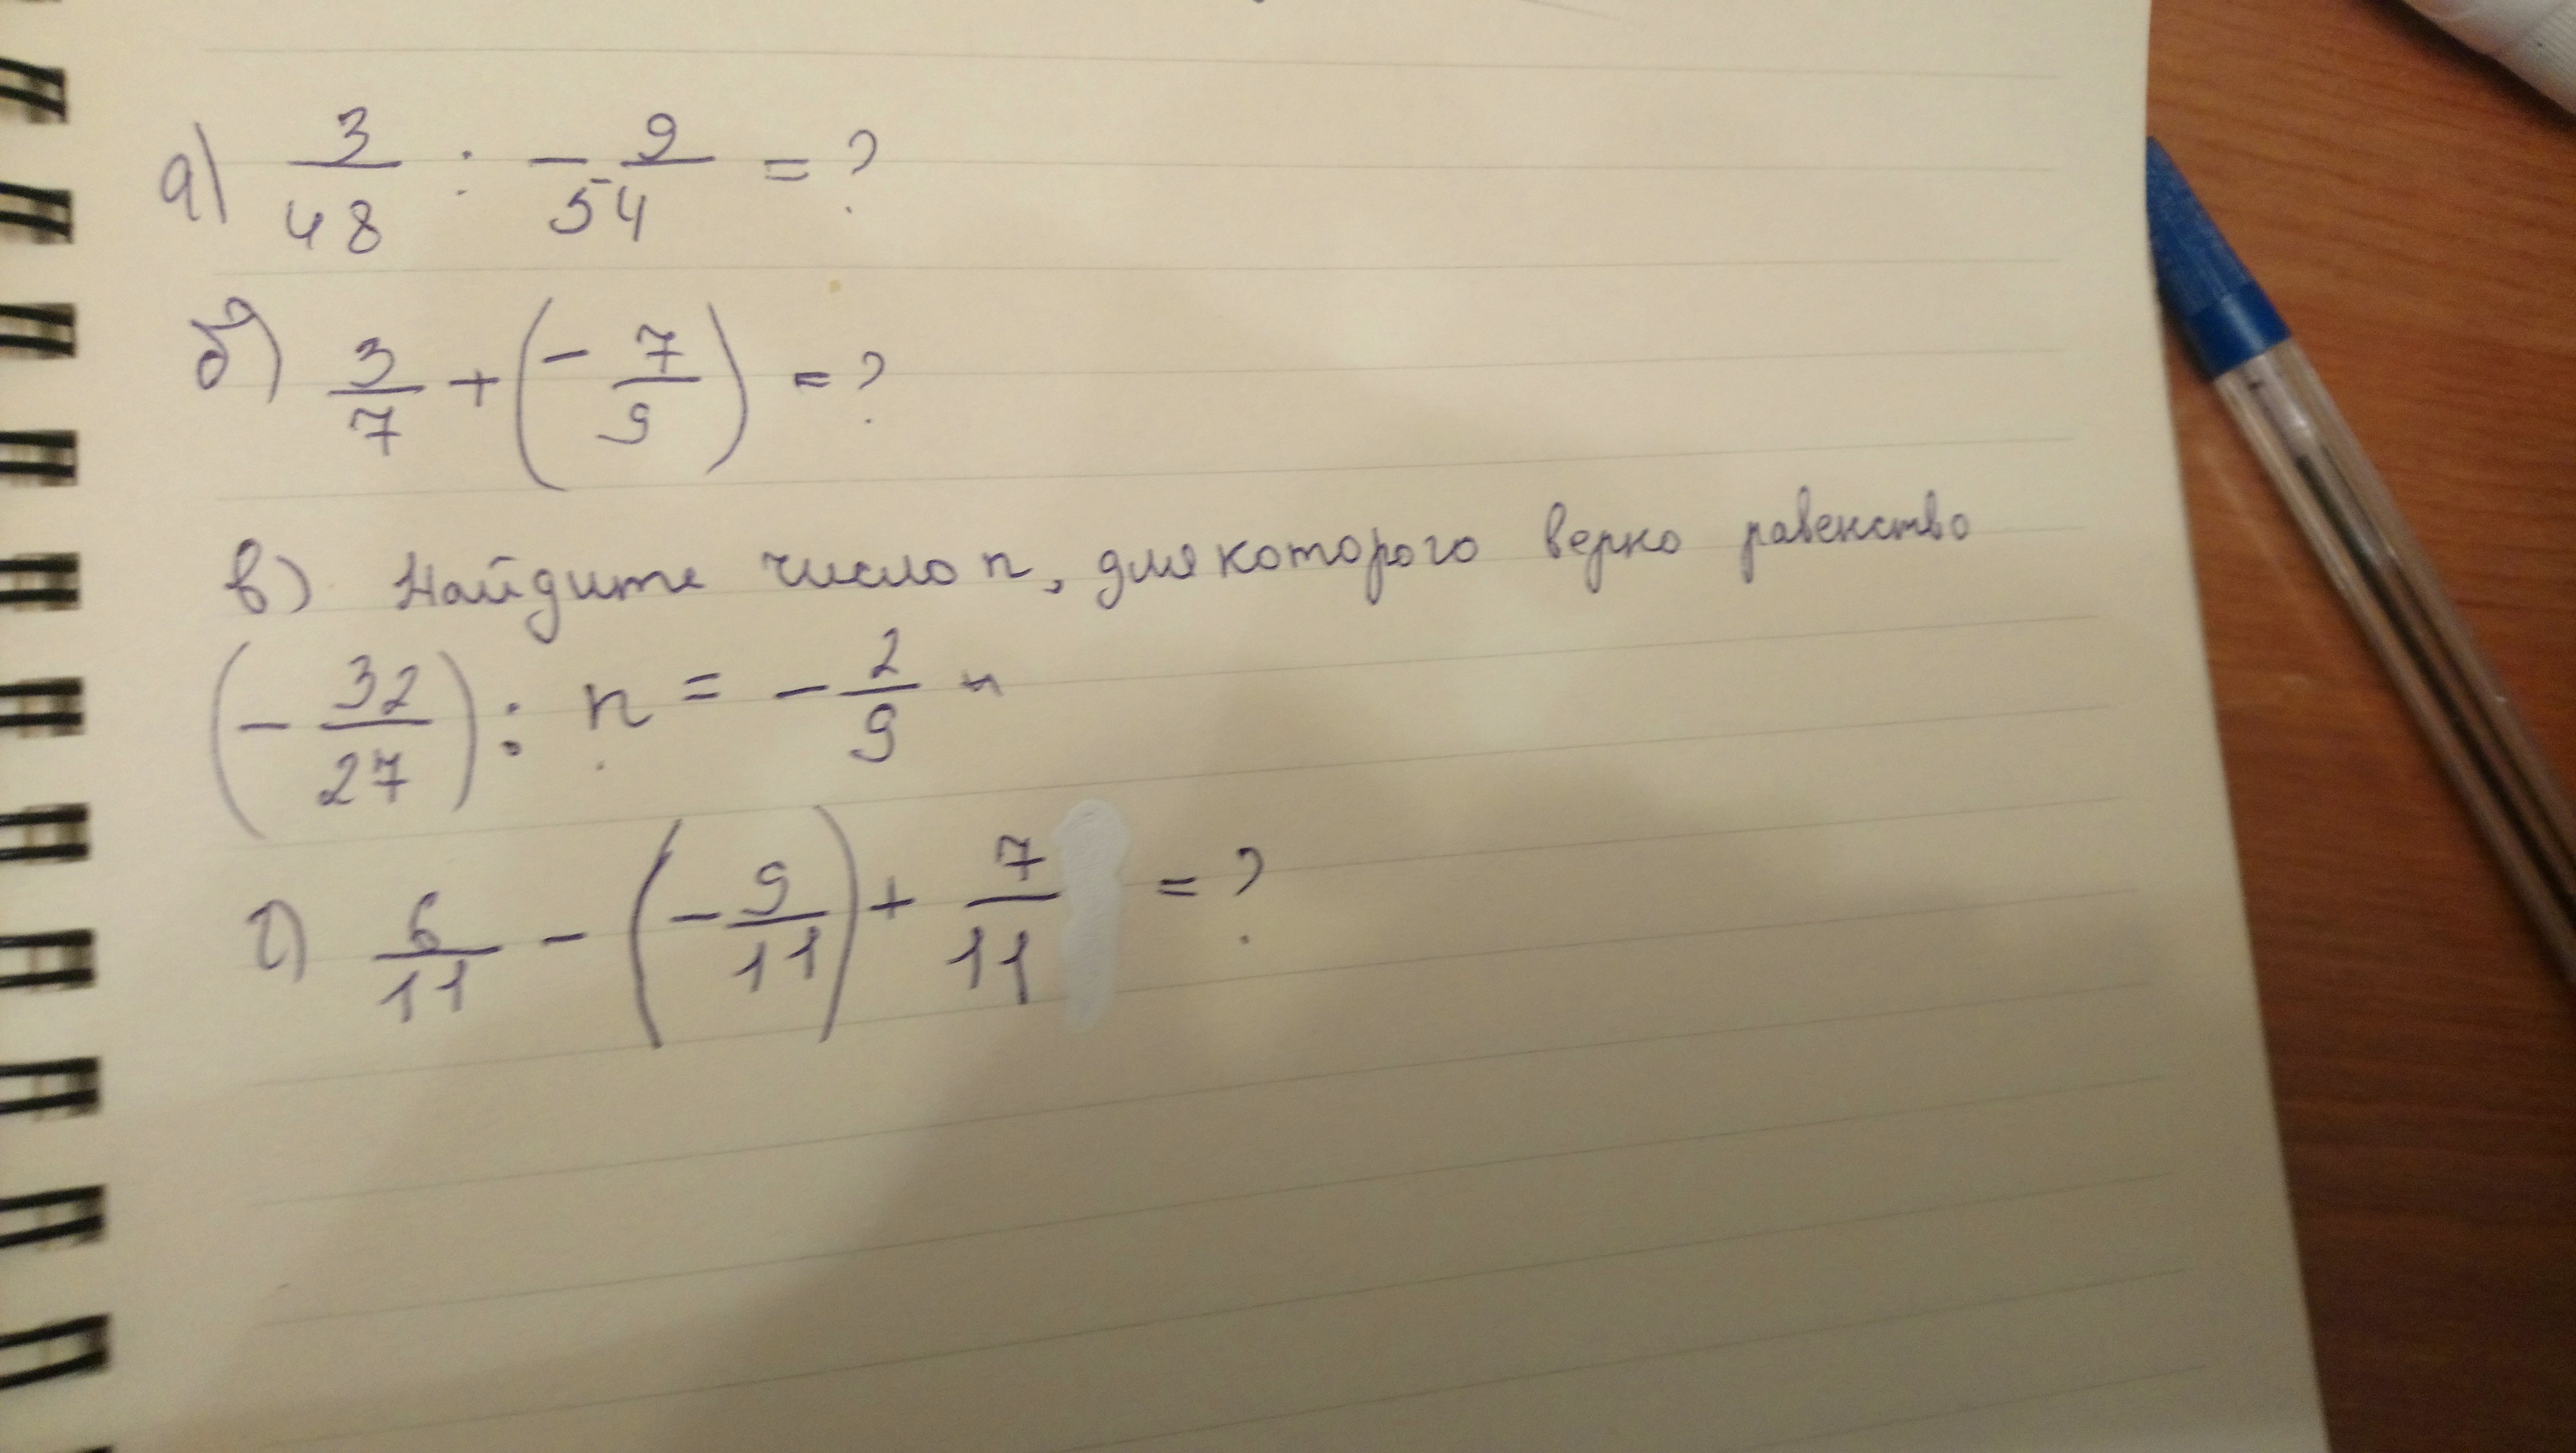 а) 3/48 : - 9/54 = ?
б) 3/7 + (- 7/9) = ?
в) Найдите число n, для которого верно равенство
(- 32/27) : n = - 2/9
г) 6/11 - (- 9/11) + 7/11 = ?